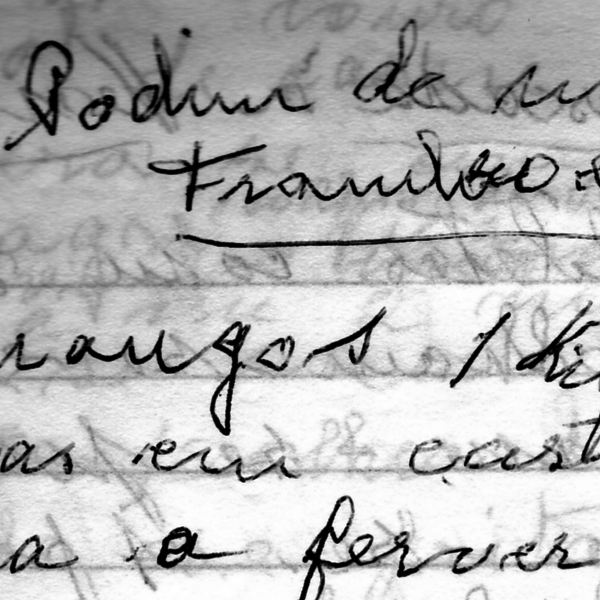 Podim de m
Framboe
rangos 1 Ki
as em cast
a a ferver